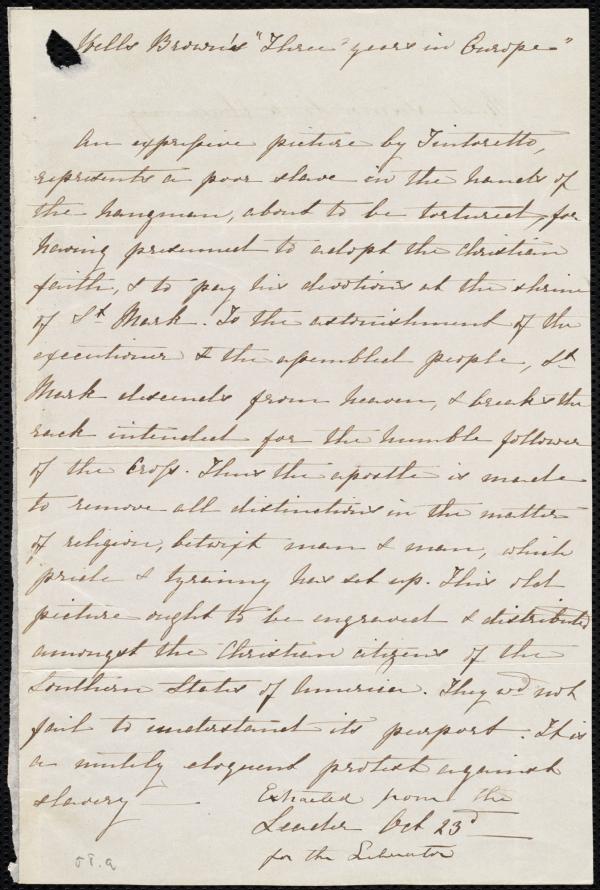 Wells Brown's "Three years in Europe"
An expressive picture by Tintoretto,
represents a poor slave in the hands of
the hangman, about to be tortured, for
having presumed to adopt the Christian
faith, & to pay his devotions at the shrine
of St Mark. To the astonishment of the
executioner & the assembled people, St
Mark descends from heaven, & breaks the
rack intended for the humble follower
of the Cross. Thus the apostle is made
to remove all distinctions in the matter
of religion, betwixt man & man, which
pride & tyranny has set up. This old
picture ought to be engraved & distributed
amongst the Christian citizens of the
Southern States of America. They wd not
fail to understand its purport. It is
a mutely eloquent protest against
slavery —
Extracted from the
Leader Oct 23d
for the Liberator